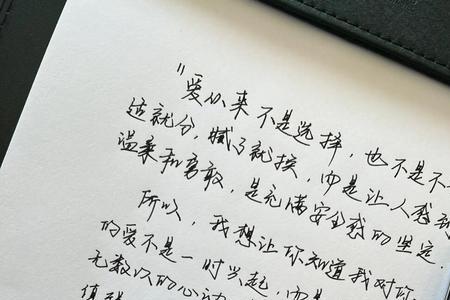 "爱从来不是选择,也不是不合
适就分,腻了就换,而是让人感到
温柔和勇敢,是充满安全感的坚定.
所以,我想让你知道我对你
的爱不是一时兴起,而是
无数次的心动
值得